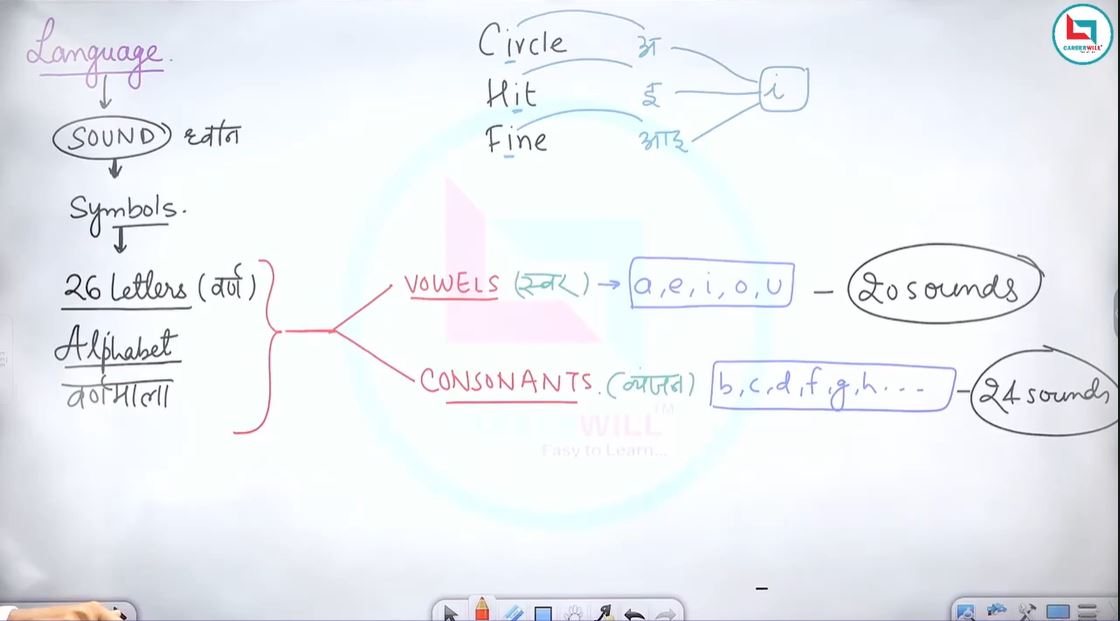 Language.
SOUND ध्वनि
Symbols.
26 Letters (वर्ण)
Alphabet
वर्णमाला
Circle अ
Hit ई i
Fine आइ
VOWELS (स्वर) → a, e, i, o, u – 20 sounds
CONSONANTS. (व्यंजन) b, c, d, f, g, h... – 24 sounds
CAREERWILL
WILL™
Easy to Learn...